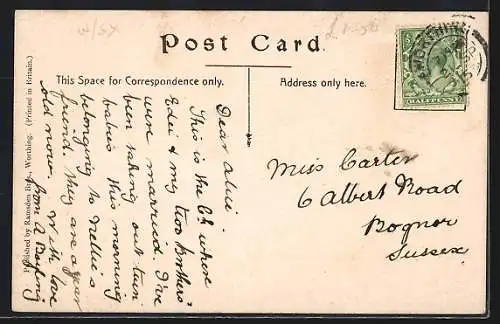 W/SX
£1-50
Post Card.
This Space for Correspondence only.
Address only here.
WORTHING
HALFPENNY
Dear Alice.
This is the Ch where
Edei & my two Brothers
were married. I've
been taking out twin
babies this morning
belonging to Nettie's
friend. They are a year
old now. With love
from A
Miss Carter
6 Albert Road
Bognor
Sussex
Published by Ramsden Bros., Worthing. (Printed in Britain.)